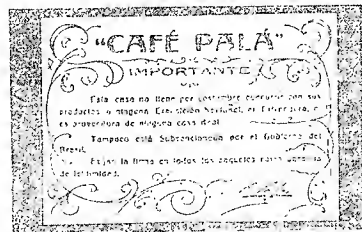 "CAFÉ PALÁ"
IMPORTANTE
Esta casa no tiene por costumbre concurrir con sus
productos a ninguna Exposición Nacional, ni Extranjera, ni
es proveedora de ninguna casa Real.
Tampoco está Subvencionada por el Gobierno del
Brasil.
Exijan la firma en todos los paquetes para garantía
de legitimidad.